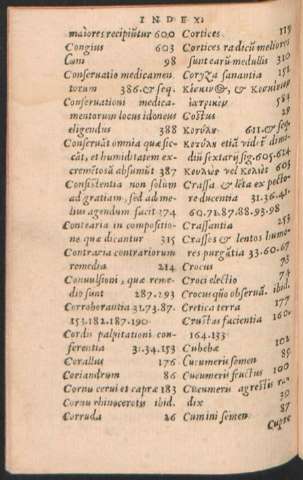 INDEX.
maiores recipiũtur 600
Congius 603
Coni 98
Conseruatio medicamen
torum 386. & seq.
Conseruationi medica-
mentorum locus idoneus
eligendus 388
Conseruãt omnia quæ sic-
cãt, et humiditatem ex-
crementosã absumũt 387
Consistentia non solum
ad gratiam, sed ad me-
lius agendum facit 274
Contraria in compositio-
ne quæ dicantur 315
Contraria contrariorum
remedia 214
Conuulsioni, quæ reme-
dio sunt 287.293
Corroborantia 31.73.87.
153.182.187.190
Cordis palpitationi con-
ferentia 31.34.153
Corallus 176
Coriandrum 86
Cornu cerui et capræ 183
Cornu rhinocerotis ibid.
Corruda 26
Cortices 119
Cortices radicũ meliores
sunt earũ medullis 310
Coryza sanantia 152
584
Costus 29
Κοτύλη 601. & seq.
Κοτύλη etiã vid. dimi-
diũ sextarij sig. 605.624
603
Crassa & lẽta ex pecto-
re ducentia 31.36.42
60.71.87.88.93.98
Crassantia 253
Crasses & lentos humo-
res purgãtia 33.60.67
Crocus 93
Croci electio 74
Crocus quõ obseruã. ibid.
Cretica terra 177
Crustas facientia 160.
164.133
Cubebæ 102
Cucumeris semen 89
Cucumeris fructus 100
Cucumeris agrestis ra-
dix 39
Cumini semen 87
Cupre